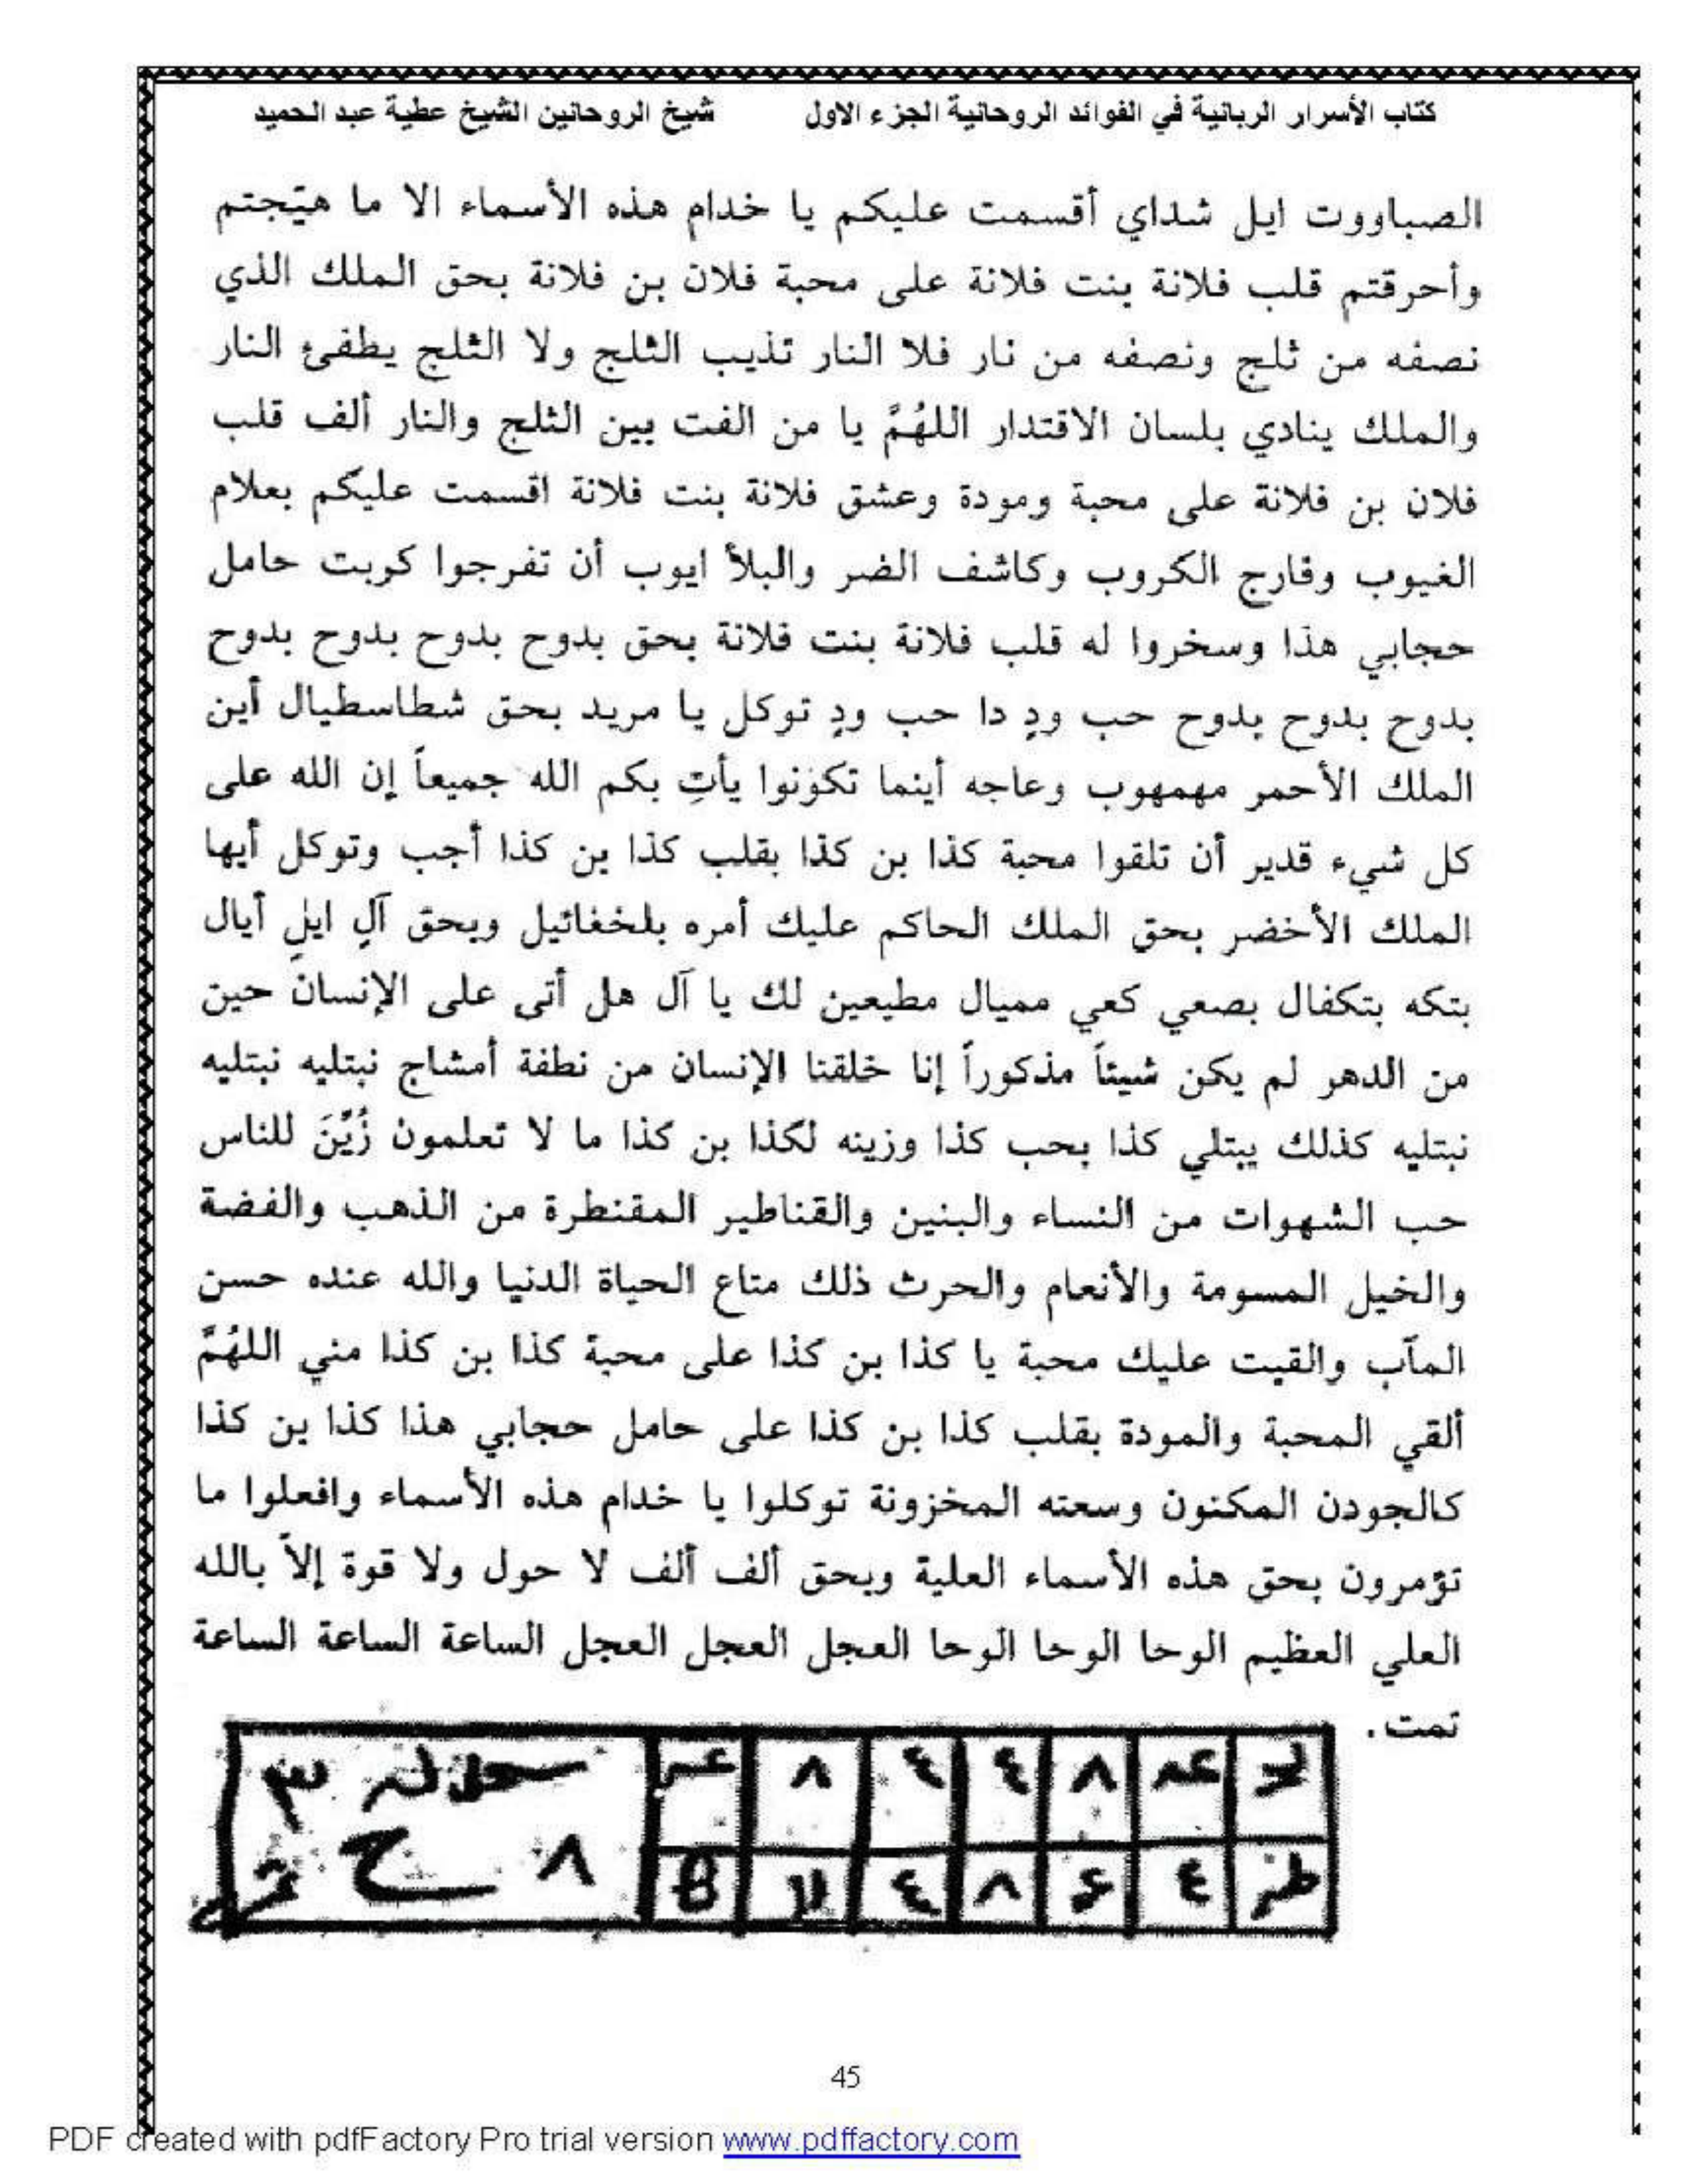 كتاب الأسرار الربانية في الفوائد الروحانية الجزء الاول شيخ الروحانين الشيخ عطية عبد الحميد
الصباووت ايل شداي أقسمت عليكم يا خدام هذه الأسماء الا ما هيّجتم
وأحرقتم قلب فلانة بنت فلانة على محبة فلان بن فلانة بحق الملك الذي
نصفه من ثلج ونصفه من نار فلا النار تذيب الثلج ولا الثلج يطفئ النار
والملك ينادي بلسان الاقتدار اللهُمَّ يا من الفت بين الثلج والنار ألف قلب
فلان بن فلانة على محبة ومودة وعشق فلانة بنت فلانة اقسمت عليكم بعلام
الغيوب وفارج الكروب وكاشف الضر والبلأ ايوب أن تفرجوا كربت حامل
حجابي هذا وسخروا له قلب فلانة بنت فلانة بحق بدوح بدوح بدوح بدوح
بدوح بدوح بدوح حب ودٍ دا حب ودٍ توكل يا مريد بحق شطاسطيال أين
الملك الأحمر مهمهوب وعاجه أينما تكونوا يأتِ بكم الله جميعاً إن الله على
كل شيء قدير أن تلقوا محبة كذا بن كذا بقلب كذا بن كذا أجب وتوكل أيها
الملك الأخضر بحق الملك الحاكم عليك أمره بلخغائيل وبحق آلٍ ايلٍ أيال
بتكه بتكفال بصعي كعي مميال مطيعين لك يا آل هل أتى على الإنسان حين
من الدهر لم يكن شيئاً مذكوراً إنا خلقنا الإنسان من نطفة أمشاج نبتليه نبتليه
نبتليه كذلك يبتلي كذا بحب كذا وزينه لكذا بن كذا ما لا تعلمون زُيِّنَ للناس
حب الشهوات من النساء والبنين والقناطير المقنطرة من الذهب والفضة
والخيل المسومة والأنعام والحرث ذلك متاع الحياة الدنيا والله عنده حسن
المآب والقيت عليك محبة يا كذا بن كذا على محبة كذا بن كذا مني اللهُمَّ
ألقي المحبة والمودة بقلب كذا بن كذا على حامل حجابي هذا كذا بن كذا
كالجودن المكنون وسعته المخزونة توكلوا يا خدام هذه الأسماء وافعلوا ما
تؤمرون بحق هذه الأسماء العلية وبحق ألف ألف لا حول ولا قوة إلاّ بالله
العلي العظيم الوحا الوحا الوحا العجل العجل العجل الساعة الساعة الساعة
تمت.
٨ ٤ ٤ ٨
٤ ٨ ٤ لا
٣
٨ ح
45
PDF created with pdfFactory Pro trial version www.pdffactory.com